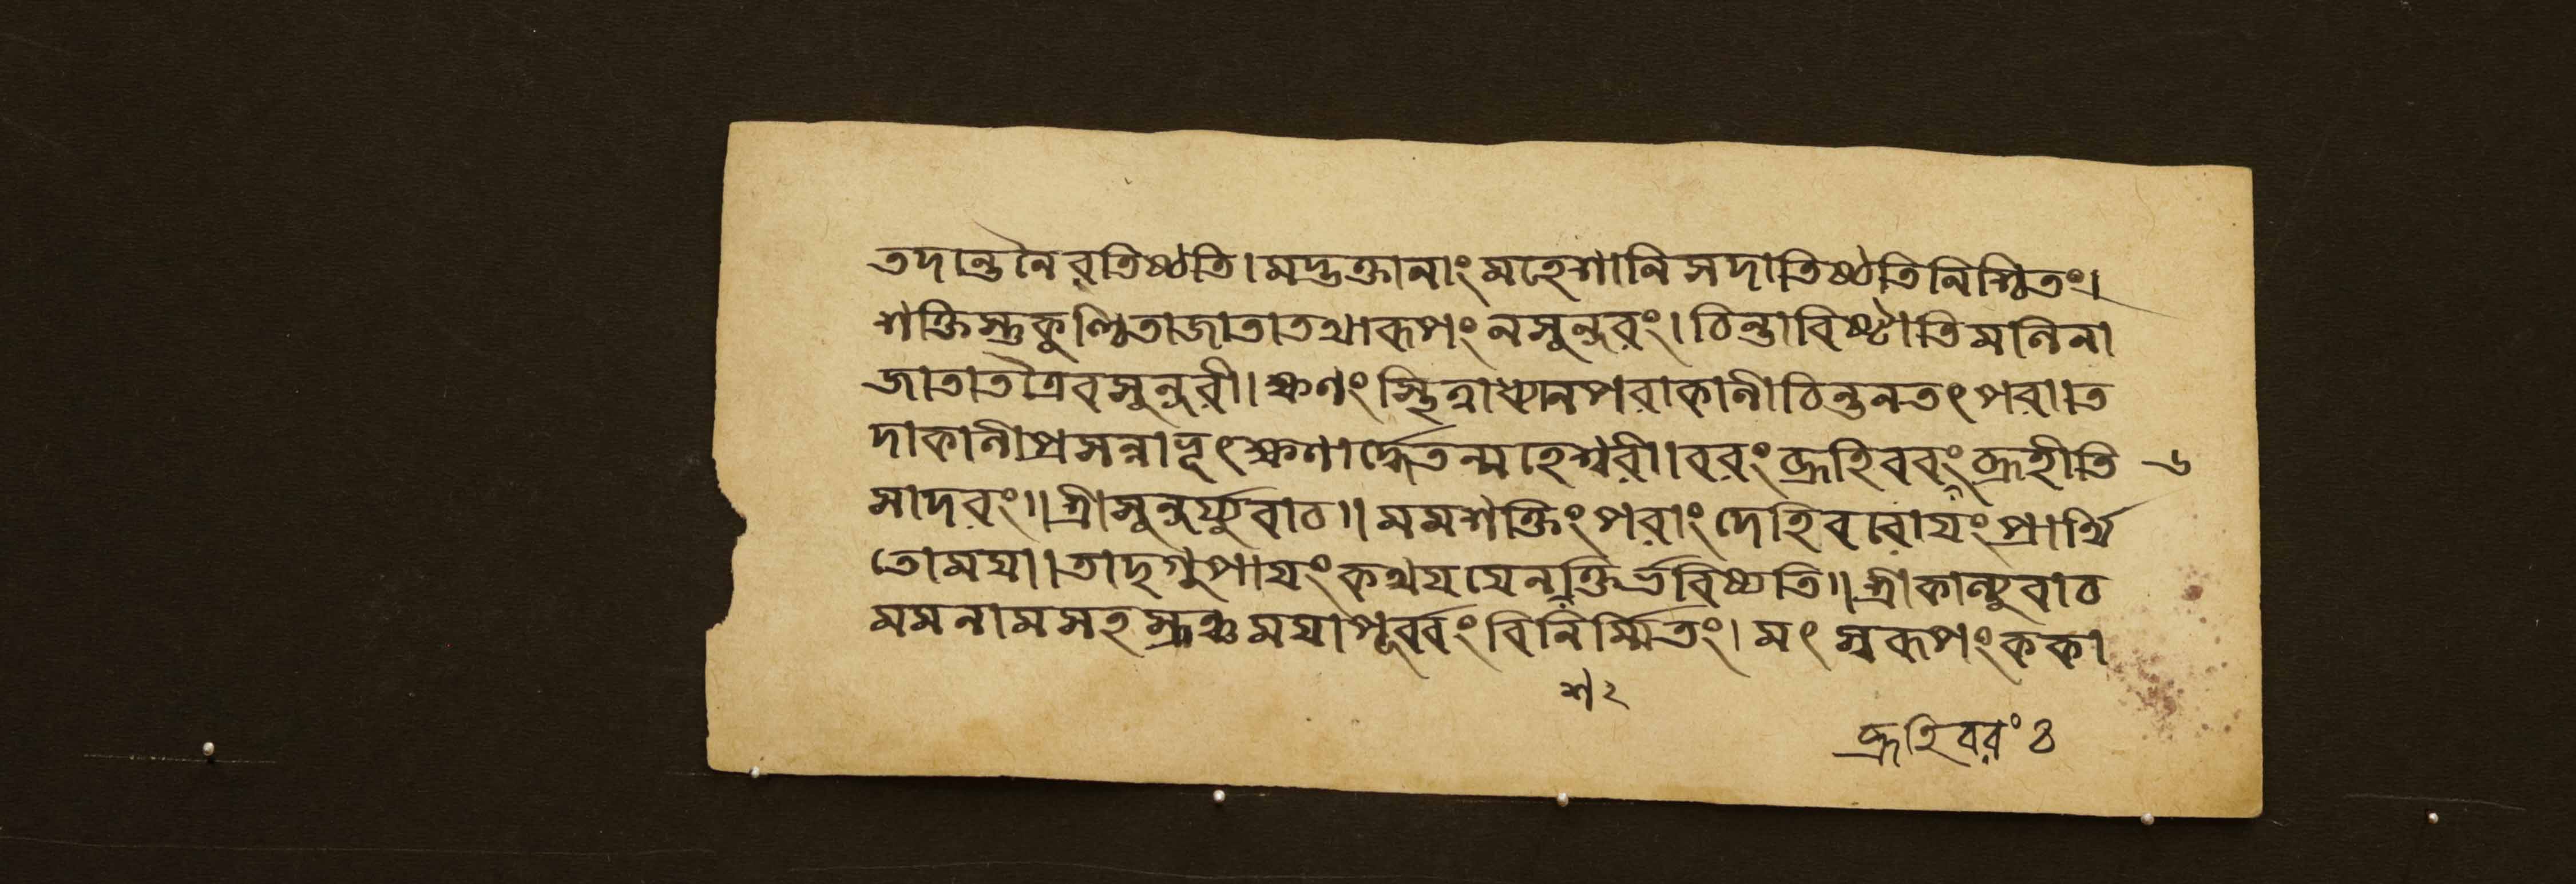 তদান্তনৈবতিষ্ঠতি। মদ্ভক্তানাং মহেশানি সদাতিষ্ঠতিনিশ্চিতং।
শক্তিস্তুকুণ্ঠিতাজাতাতথারূপং নসুন্দরং। চিন্তাবিষ্টাতিমলিনা
জাতাতত্রৈবসুন্দরী। ক্ষণং স্থিত্বাধ্যানপরাকালীচিন্তনতৎপরা। ত
দাকালীপ্রসন্নাভূৎক্ষণার্দ্ধেতন্মহেশ্বরী। বরং ব্রূহিবরং ব্রূহীতি
সাদরং॥ শ্রীসুন্দর্য্যুবাচ॥ মমশক্তিং পরাং দেহিবরোয়ং প্রার্থি
তোময়া। তাদৃগুপায়ং কথয়যেনশক্তির্ভবিষ্যতি॥ শ্রীকাল্যুবাচ
মমনামসহস্রঞ্চময়াপূর্ব্বং বিনির্ম্মিতং। মৎস্বরূপং ককা
শ ২
ব্রূহিবরং ৪